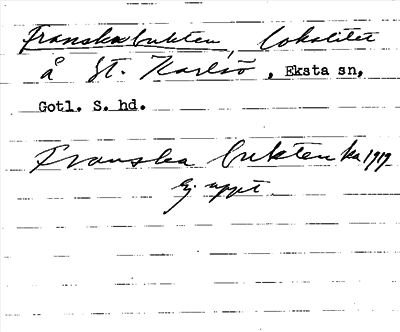 Franska bukten, lokalitet
å St. Karlsö, Eksta sn,
Gotl. S. hd.
Franska bukten ka 1919
Ej uppt.